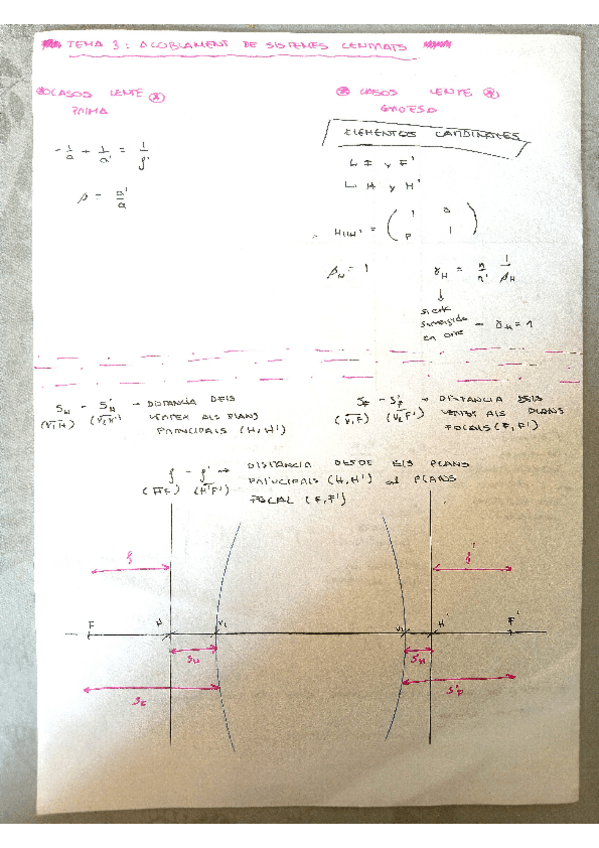 TEMA 3: ACOBLAMENT DE SISTEMES CENTRATS
* CASOS LENTE *
PRIMA
-1/a + 1/a' = 1/f'
β = a'/a
* CASOS LENTE *
GROESA
ELEMENTOS CARDINALES
L F y F'
L H y H'
M_HH' = ( 1 0
P 1 )
β_H = 1
γ_H = n/n' 1/β_H
↓
si está
sumergida
en aire → γ_H = 1
S_H - S'_H → DISTANCIA DELS
(V₁H) (V₂H') VERTEX ALS PLANS
PRINCIPALS (H, H')
S_F - S'_F → DISTANCIA DELS
(V₁F) (V₂F') VERTEX ALS PLANS
FOCALS (F, F')
f - f' → DISTÀNCIA DESDE ELS PLANS
(HF) (H'F') PRINCIPALS (H, H') al PLANS
FOCAL (F, F')
f f'
F H V₁ V₂ H' F'
S_H S'_H
S_F S'_F